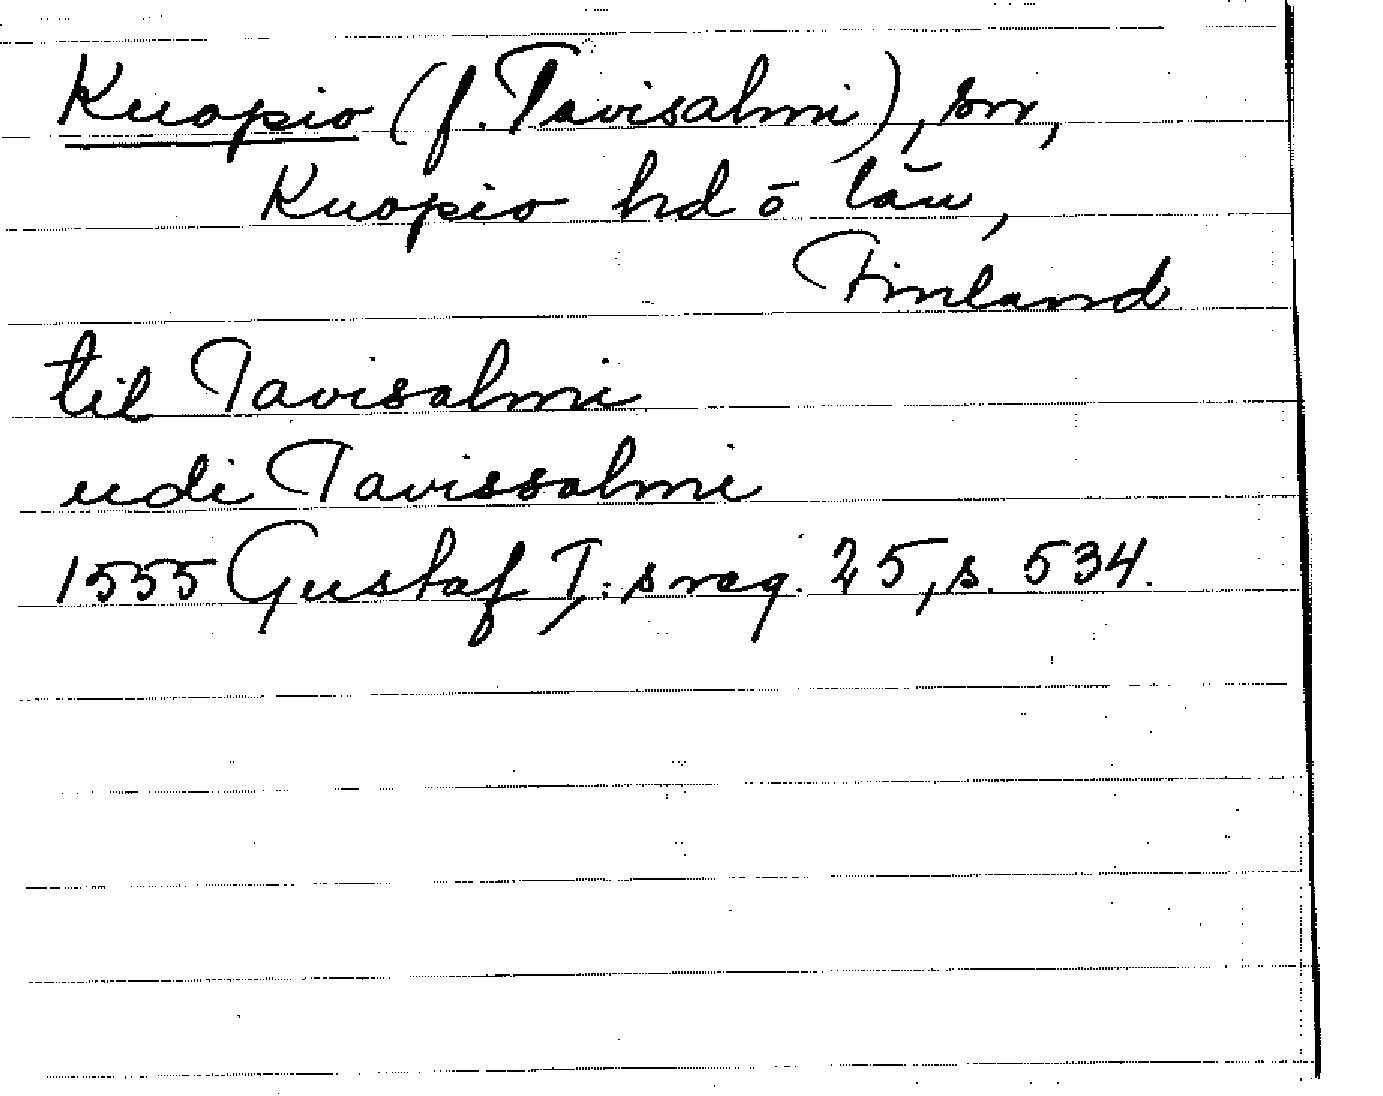 Kuopio (f. Tavisalmi), sn,
Kuopio hd ō län,
Finland
til Tavisalmi
udi Tavissalmi
1555 Gustaf I:s reg. 25, s. 534.